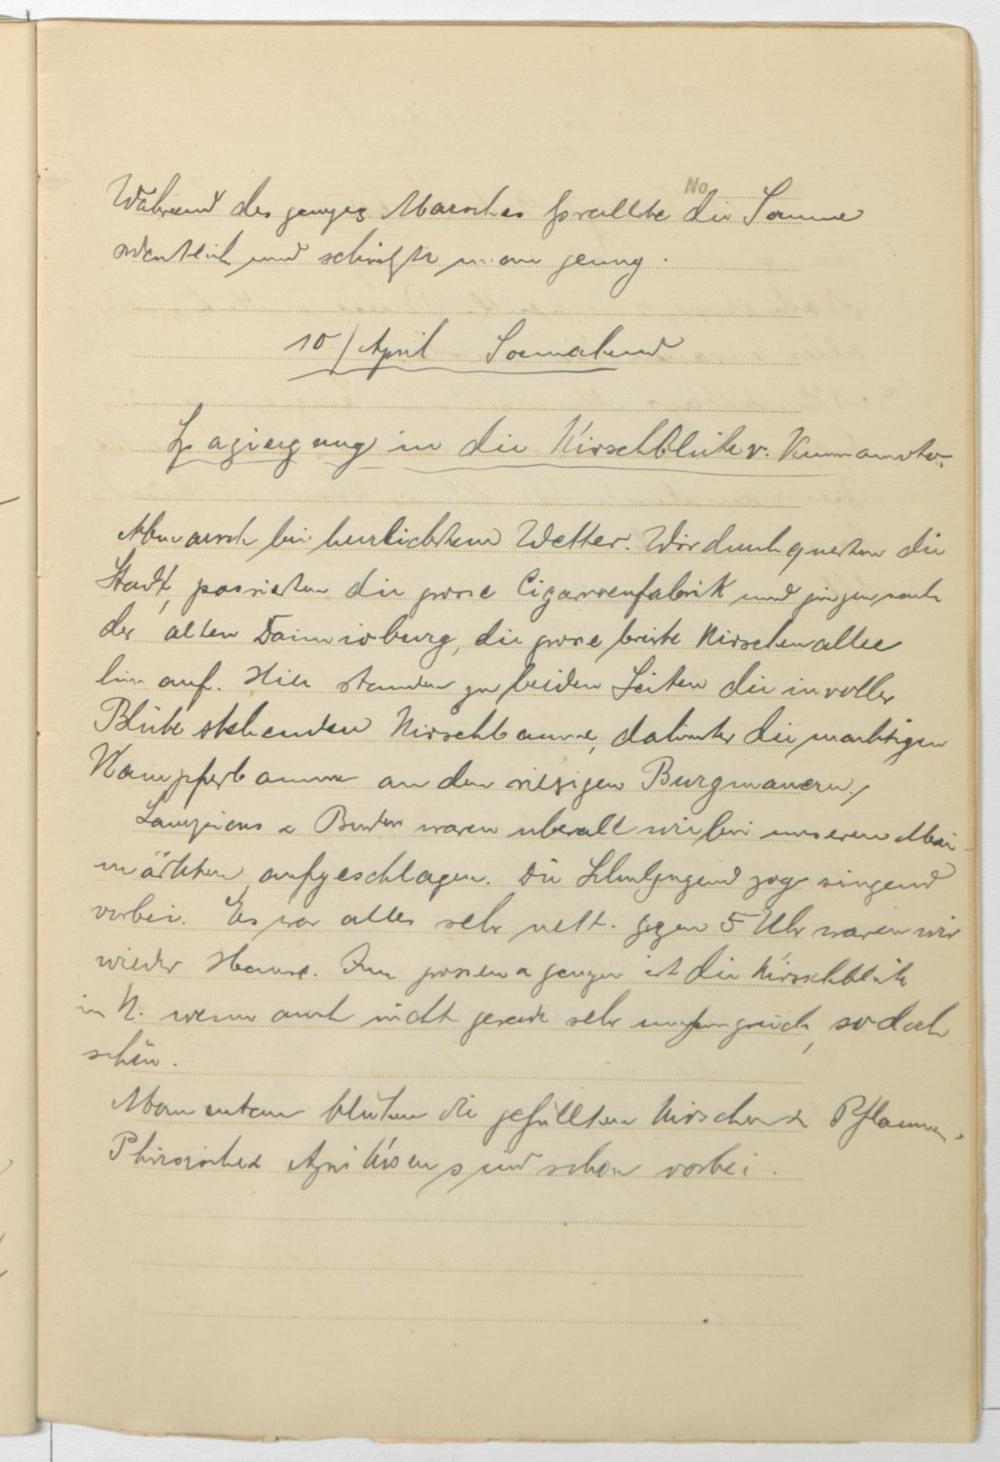 No
Während des ganzes Marsches prallte die Sonne
ordentlich und schwitzte man genug.
10/April Sonnabend
Spaziergang in die Kirschblüte v. Kumamoto.
Abmarsch bei herrlichstem Wetter. Wir durchquerten die
Stadt, passierten die grosse Cigarrenfabrik und gingen nach
der alten Daimioburg, die grose breite Kirschenallee
hinauf. Hier standen zu beiden Seiten die in voller
Blüte stehenden Kirschbäume, dahinter die mächtigen
Kampferbäume an den riesigen Burgmauern.
Lampions & Buden waren uberall wie bei unseren Mai-
märkten aufgeschlagen. Die Schuljugend zog singend
vorbei. Es war alles sehr nett. Gegen 5 Uhr waren wir
wieder Hause. Im grossen & ganzen ist die Kirschblüte
in K. wenn auch nicht gerade sehr umfangreich, so doch
schön.
Momentan blühen die gefüllten Kirschen & Pflaumen.
Pfirsiche & Aprikosen sind schon vorbei.